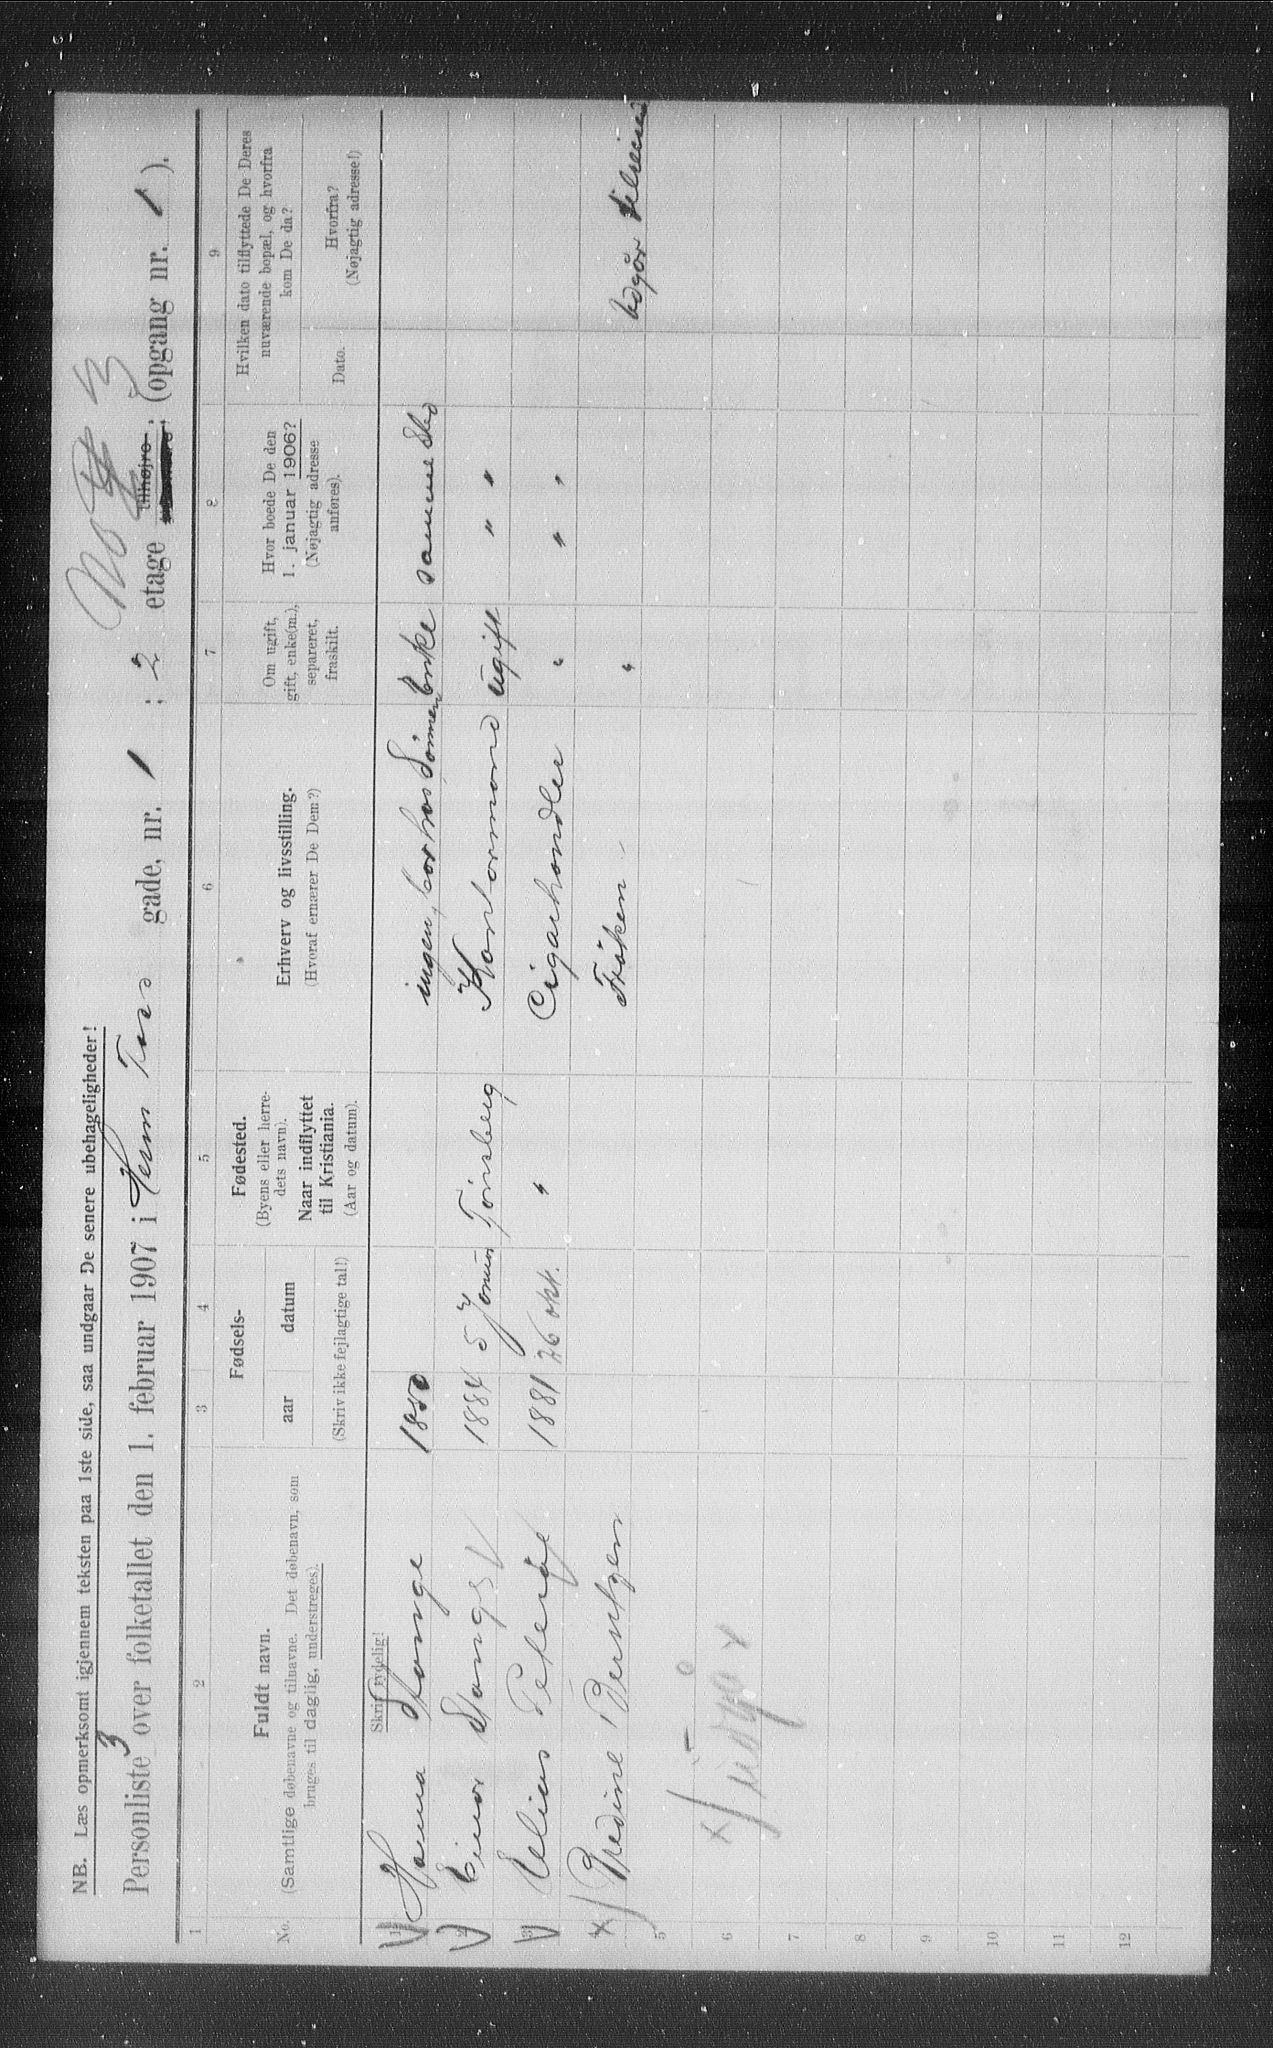 NB. Læs opmerksomt igjennem teksten paa 1ste side, saa undgaar De senere ubehageligheder!
Personliste 3 over folketallet den 1. februar 1907 i Herm Foss gade, nr. 1 ; 2 etage tilhøjre ; (opgang nr. 1 ).
1 2 3 4 5 6 7 8 9
No.
Fuldt navn.
(Samtlige døbenavne og tilnavne. Det døbenavn, som
bruges til daglig, understreges).
Skriv tydelig!
Fødsels-
aar datum
(Skriv ikke fejlagtige tal!)
Fødested.
(Byens eller herre-
dets navn).
Naar indflyttet
til Kristiania.
(Aar og datum).
Erhverv og livsstilling.
(Hvoraf ernærer De Dem?)
Om ugift,
gift, enke(m.),
separeret,
fraskilt.
Hvor boede De den
1. januar 1906?
(Nøjagtig adresse
anføres).
Hvilken dato tilflyttede De Deres
nuværende bopæl, og hvorfra
kom De da?
Dato.
Hvorfra?
(Nøjagtig adresse!)
1 Hanna Stange 1850 ingen, bor hos Sönnen Enke samme Sted
2 Einar Stange 1884 5 Tönsberg Kontormand ugift " "
3 Elias 1881 26 okt. " Cigarhandler " " "
4 x) Berntzen Fröken "
5
6 x)
7
8
9
10
11
12